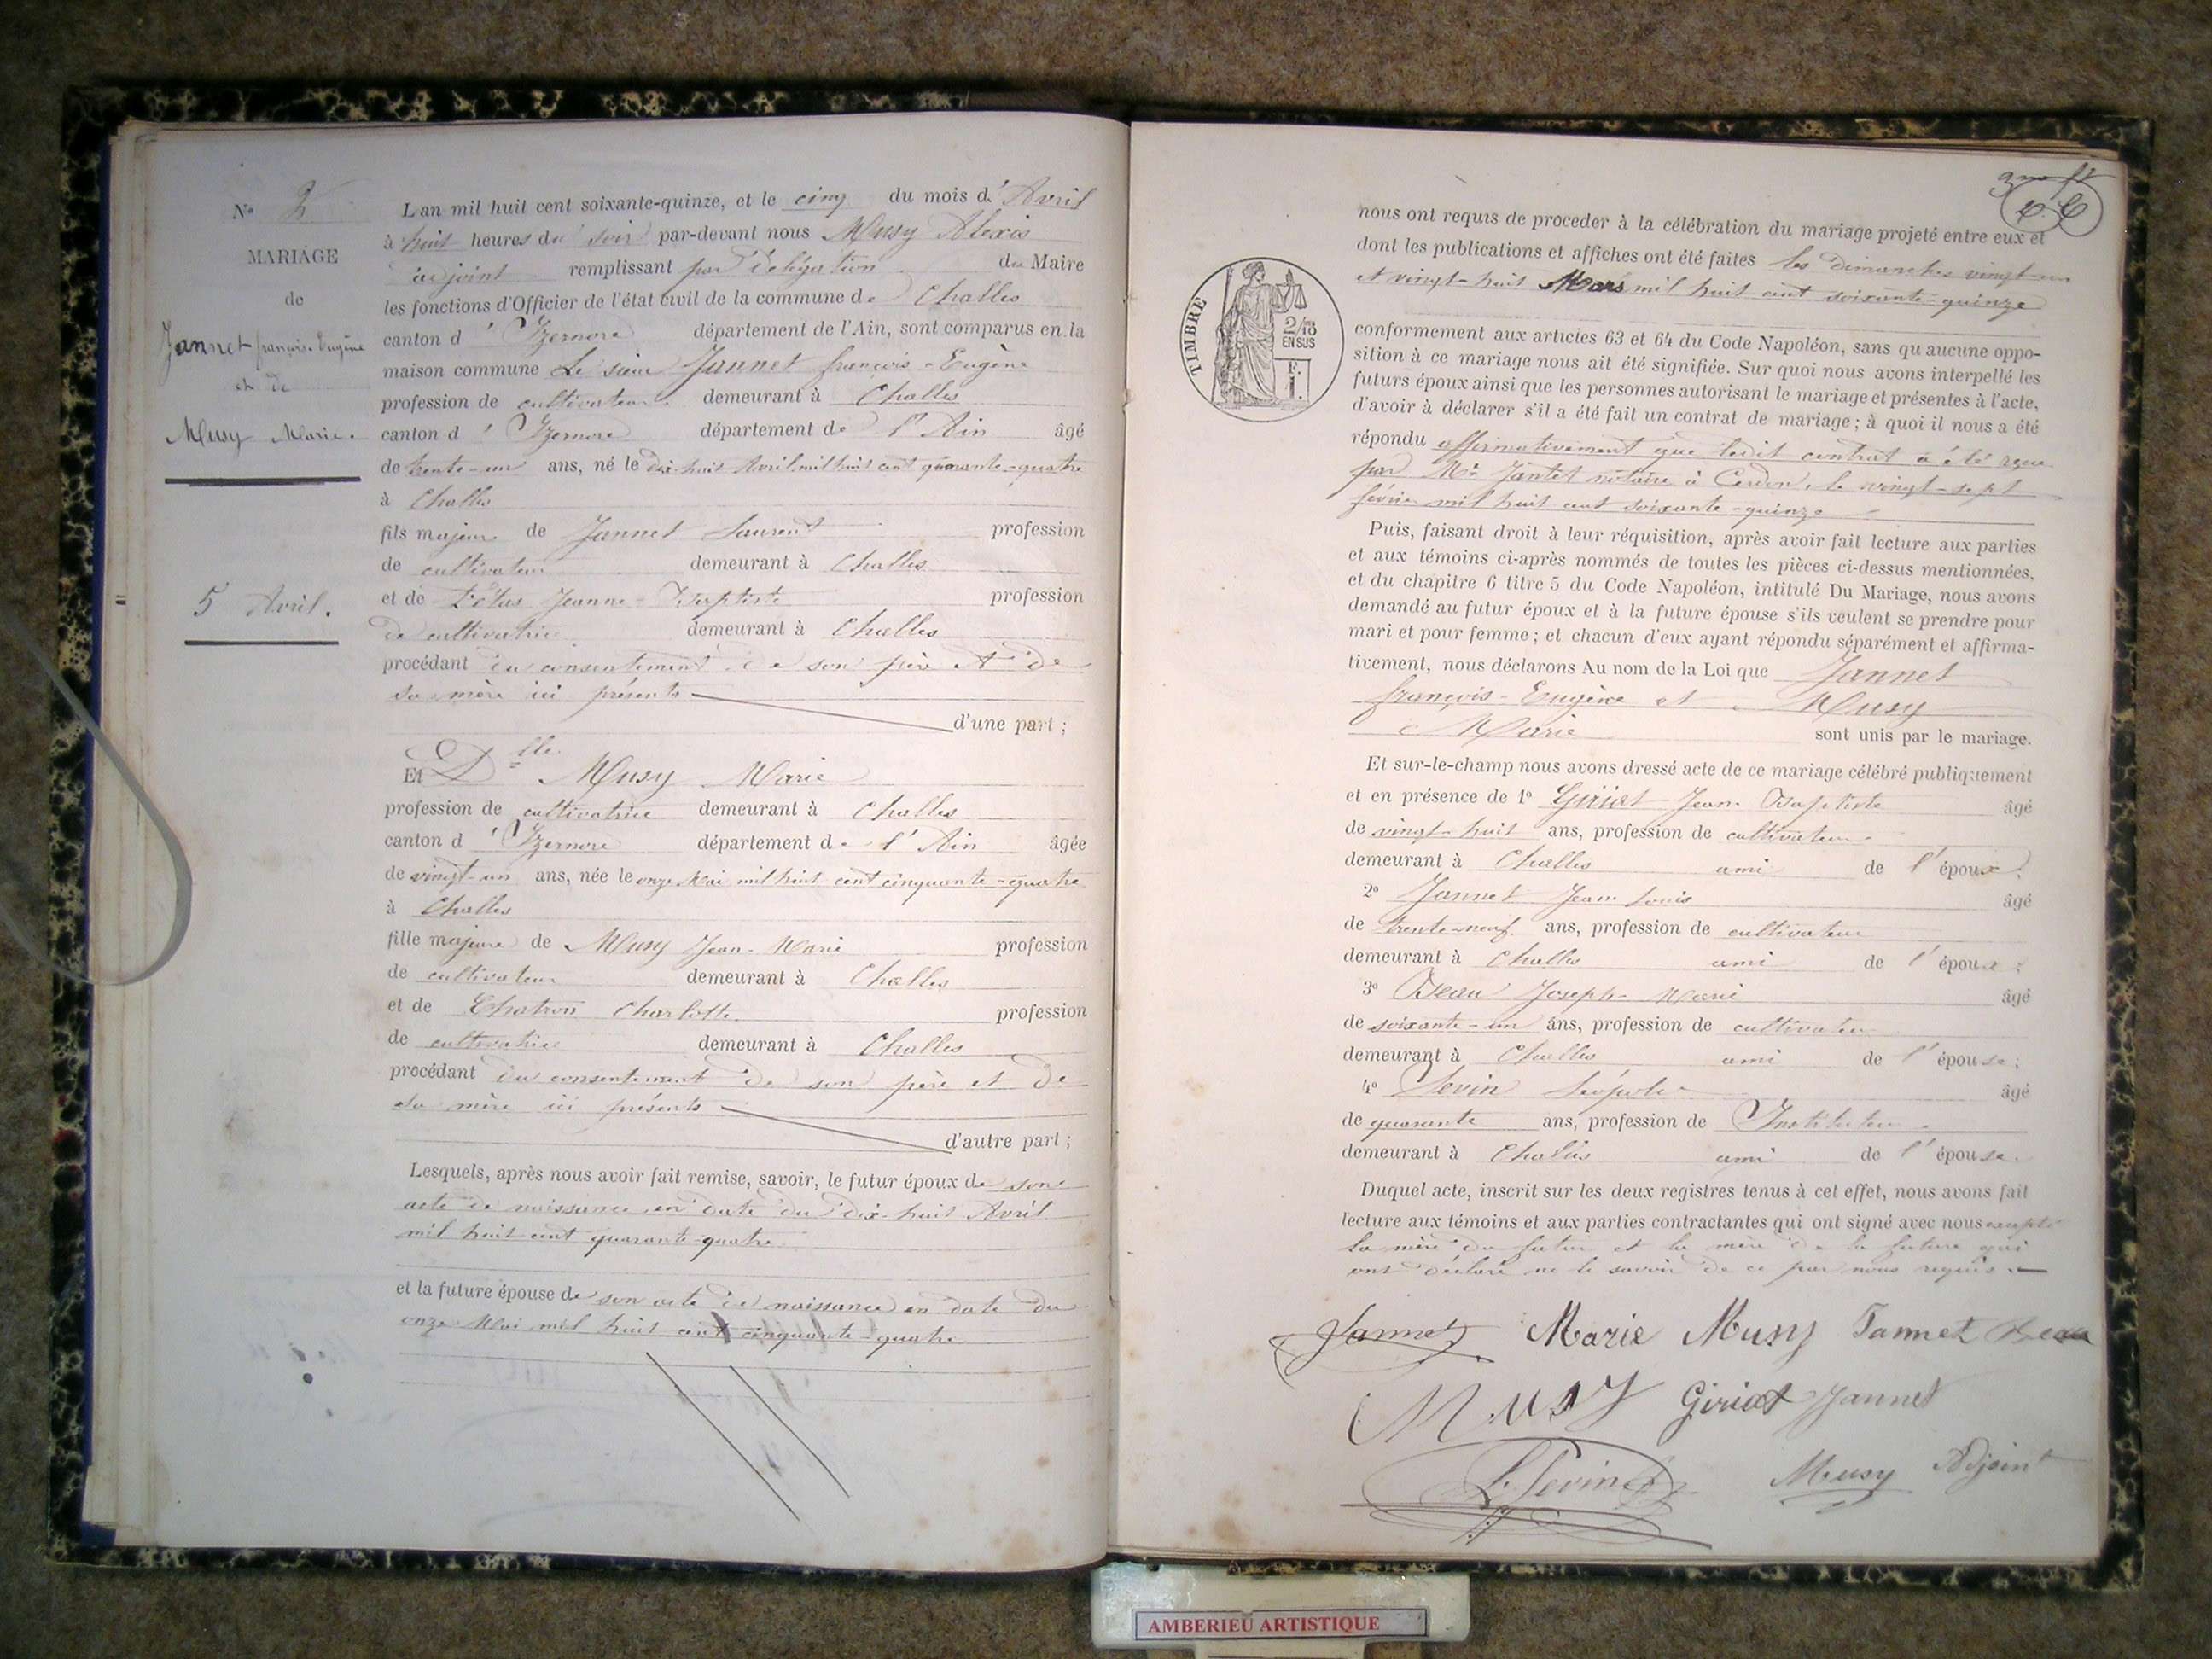 No 2
MARIAGE
de
Jannet françois-Eugène
et de
Musy Marie.
5 Avril.
L'an mil huit cent soixante-quinze, et le cinq du mois d'Avril
à huit heures du soir par-devant nous Musy Alexis
adjoint remplissant par délégation du Maire
les fonctions d'Officier de l'état civil de la commune de Challes
canton d'Izernore département de l'Ain, sont comparus en la
maison commune Le sieur Jannet françois-Eugène
profession de cultivateur demeurant à Challes
canton d'Izernore département de l'Ain âgé
de trente-un ans, né le dix-huit Avril mil huit cent quarante-quatre
à Challes
fils majeur de Jannet Laurent profession
de cultivateur demeurant à Challes
et de Jeanne-Baptiste profession
de cultivatrice demeurant à Challes
procédant du consentement de son père et de
sa mère ici présents
d'une part ;
Et Dlle Musy Marie
profession de cultivatrice demeurant à Challes
canton d'Izernore département de l'Ain âgée
de vingt-un ans, née le onze Mai mil huit cent cinquante-quatre
à Challes
fille majeure de Musy Jean-Marie profession
de cultivateur demeurant à Challes
et de Chatron Charlotte profession
de cultivatrice demeurant à Challes
procédant du consentement de son père et de
sa mère ici présents
d'autre part ;
Lesquels, après nous avoir fait remise, savoir, le futur époux de son
acte de naissance en date du dix-huit Avril
mil huit cent quarante-quatre
et la future épouse de son acte de naissance en date du
onze Mai mil huit cent cinquante-quatre
TIMBRE
2/10
EN SUS
F.
1.
nous ont requis de proceder à la célébration du mariage projeté entre eux et
dont les publications et affiches ont été faites les dimanches vingt-un
et vingt-huit Mars mil huit cent soixante-quinze
conformement aux articles 63 et 64 du Code Napoléon, sans qu'aucune oppo-
sition à ce mariage nous ait été signifiée. Sur quoi nous avons interpellé les
futurs époux ainsi que les personnes autorisant le mariage et présentes à l'acte,
d'avoir à déclarer s'il a été fait un contrat de mariage ; à quoi il nous a été
répondu affirmativement que ledit contrat a été reçu
par Me Jantet notaire à Cerdon, le vingt-sept
février mil huit cent soixante-quinze
Puis, faisant droit à leur réquisition, après avoir fait lecture aux parties
et aux témoins ci-après nommés de toutes les pièces ci-dessus mentionnées,
et du chapitre 6 titre 5 du Code Napoléon, intitulé Du Mariage, nous avons
demandé au futur époux et à la future épouse s'ils veulent se prendre pour
mari et pour femme ; et chacun d'eux ayant répondu séparément et affirma-
tivement, nous déclarons Au nom de la Loi que Jannet
françois-Eugène et Musy
Marie sont unis par le mariage.
Et sur-le-champ nous avons dressé acte de ce mariage célébré publiquement
et en présence de 1o Giriat Jean Baptiste âgé
de vingt-huit ans, profession de cultivateur
demeurant à Challes ami de l'époux ;
2o Jannet Jean Louis âgé
de trente-neuf ans, profession de cultivateur
demeurant à Challes ami de l'époux ;
3o Beau Joseph-Marie âgé
de soixante-un ans, profession de cultivateur
demeurant à Challes ami de l'épouse ;
4o Sevin Léopold âgé
de quarante ans, profession de Instituteur
demeurant à Challes ami de l'épouse.
Duquel acte, inscrit sur les deux registres tenus à cet effet, nous avons fait
lecture aux témoins et aux parties contractantes qui ont signé avec nous excepté
la mère du futur et la mère de la future qui
ont déclaré ne le savoir de ce par nous requis.
Jannet Marie Musy Jannet Beau
MUSY Giriat Jannet
L. Sevin Musy Adjoint
AMBERIEU ARTISTIQUE